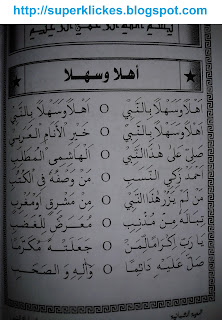 http://superklickes.blogspot.com
أهلا وسهلا
أَهْلًا وَسَهْلًا بِالنَّبِي O أَهْلًا وَسَهْلًا بِالنَّبِي
أَهْلًا وَسَهْلًا بِالنَّبِي O خَيْرِ الْأَنَامِ الْعَرَبِي
صَلَّى عَلَى هٰذَا النَّبِي O الْهَاشِمِي الْمُطَّلِبِ
أَحْمَدْ زَكِي النَّسَبِ O مَنْ وَصْفُهُ فِي الْكُتُبِ
مَنْ لَمْ يَزُرْ هٰذَا النَّبِي O مِنْ مَشْرِقٍ أَوْ مَغْرِبِ
تَبَالَهُ مِنْ مُذْنِبٍ O مُعَرَّضٍ لِلْغَضَبِ
يَا رَبِّ إِكْرَامًا لِمَنْ O جَعَلْتَهُ مُكَرَّمًا
صَلِّ عَلَيْهِ دَائِمًا O وَآلِهِ وَ الصَّحَبِ